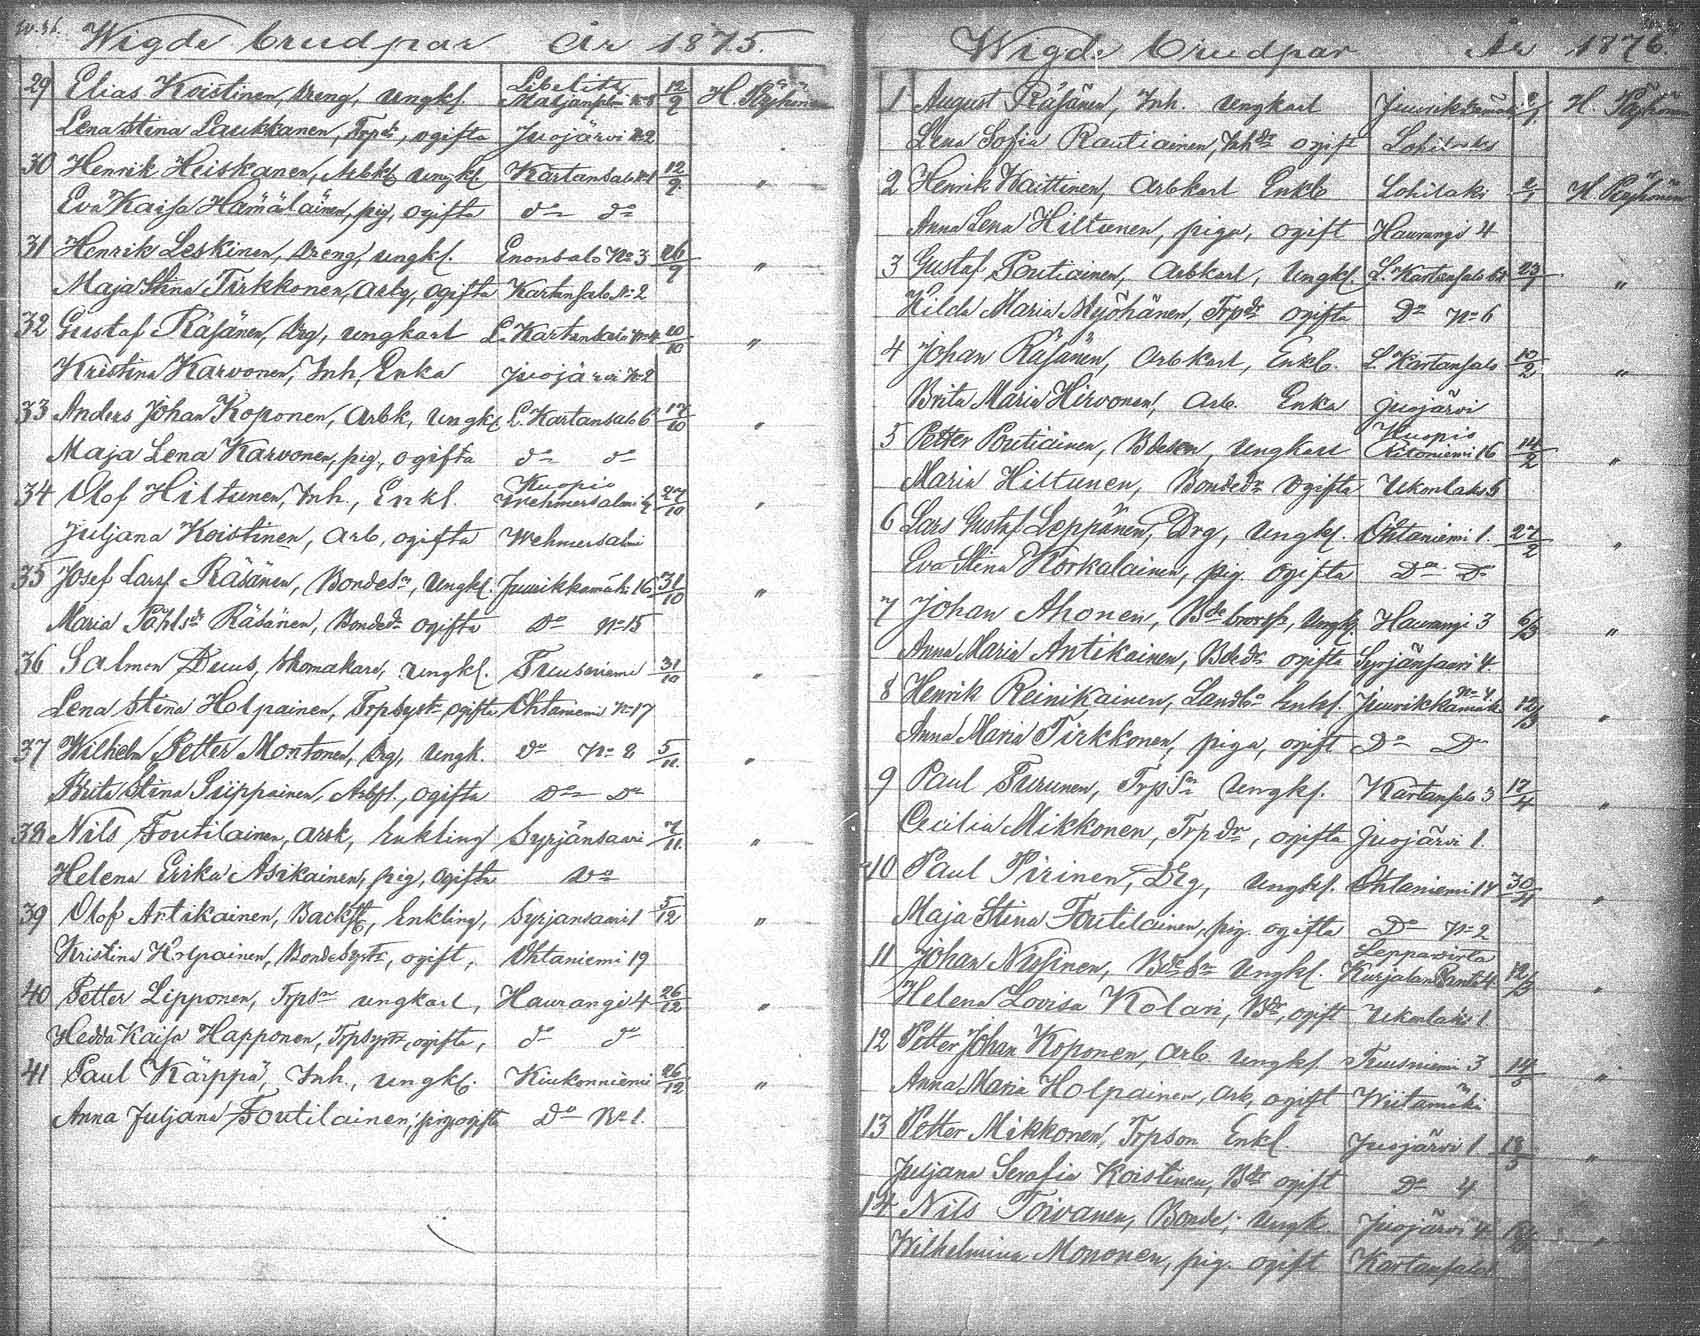 Wigde Brudpar År 1875.
29 Elias Koistinen, Dreng, ungkl. Libelits Maljanplmi No 8 12/9 H. Käyhönen
Lena Stina Laukkanen, Trpdr, ogifta Juojärvi No 2
30 Henrik Heiskanen, Arbkl ungkl. Kartansalo No 1 12/9 "
Eva Kaisa Hämäläinen, pig, ogifta do do
31 Henrik Leskinen, Dreng, ungkl. Enonsalo No 3 26/9 "
Maja Stina Tirkkonen, Arby, ogifta Kartansalo No 2
32 Gustaf Räsänen, Drg, ungkarl L. Kartansalo No 4 10/10 "
Kristina Karvonen, Inh, Enka Juojärvi No 2
33 Anders Johan Koponen, Arbk, ungkl. L. Kartansalo 6 17/10 "
Maja Lena Karvonen, pig, ogifta do do
34 Olof Hiltunen, Inh., Enkl. Kuopio Wehmersalmi 4 27/10 "
Juljana Koistinen, Arb, ogifta Wehmersalmi
35 Josef Larsf Räsänen, Bondesn, ungkl. Juurikkamäki 16 31/10 "
Maria Påhlsdr Räsänen, Bondedr ogifta Do No 15
36 Salmon Duus, Skomakare, ungkl. Tuusniemi 31/10 "
Lena Stina Holpainen, Trpsystr, ogifta Ohtaniemi No 17
37 Wilhelm Petter Montonen, Drg, ungk. do No 2 5/11. "
Brita Stina Siippainen, Arbft., ogifta Do Do
38 Nils Toutilainen, arbk, Enkling Syrjänsaari 7/11. "
Helena Erika Asikainen, pig, ogifta Do
39 Olof Antikainen, Backst, Enkling, Syrjansaari 1 5/12 "
Kristina Holpainen, Bondesystr, ogift, Ohtaniemi 19
40 Petter Lipponen, Trpsn ungkarl, Haurangi 4 26/12 "
Hedda Kaisa Happonen, Trpsystr, ogifta, do do
41 Paul Kärppä, Inh., ungkl. Kiukonniemi 26/12 "
Anna Juljana Toutilainen, piga ogifta Do No 1.
Wigde Brudpar År 1876.
1 August Räsänen, Inh. ungkarl Juurikkamäki 2/1 H. Käyhönen
Lena Sofia Rautiainen, Inhdr ogift Lohilaks
2 Henrik Kaittinen, Arbkarl Enkl. Lohilaks 2/1 H. Käyhönen
Anna Lena Hiltunen, piga, ogift Haurangi 4
3 Gustaf Poutiainen, Arbkarl, ungkl. L. Kartansalo 23/1 "
Hilda Maria Myöhänen, Trpdr ogifta Do No 6
4 Johan Räsänen, Arbkarl, Enkl. L. Kartansalo 10/2 "
Brita Maria Hirvonen, Arb. Enka Juojärvi
5 Petter Poutiainen, Bdeson, ungkarl Kuopio Ritoniemi 16 14/2 "
Maria Hiltunen, Bondedr ogifta Ukonlaks 5
6 Lars Gustaf Leppänen, Drg, ungkl. Ohtaniemi 1. 27/2 "
Eva Stina Korkalainen, pig. ogifta Do Do
7 Johan Ahonen, Bde brorsn, ungkl. Haurangi 3 6/3 "
Anna Maria Antikainen, Bdedr ogifta Syrjänsaari 4.
8 Henrik Reinikainen, Landbo Enkl. Juurikkamäki No 4 12/3 "
Anna Maria Tirkkonen, piga, ogift Do Do
9 Paul Turunen, Trpsn ungkl. Kartansalo 3 17/4 "
Cecilia Mikkonen, Trpdr, ogifta Juojärvi 1.
10 Paul Pirinen, Drg, ungkl. Ohtaniemi 14 30/4 "
Maja Stina Toutilainen, pig. ogifta Do No 2
11 Johan Nissinen, Bdesn ungkl. Leppävirta Kurjalanranta 4 12/3 "
Helena Lovisa Kolari, Bdr, ogift Ukonlaks 1
12 Petter Johan Koponen, Arb. ungkl. Tuusniemi 3 14/5 "
Anna Maria Holpainen, Arb, ogift Wiitamäki
13 Petter Mikkonen, Trpson Enkl Juojärvi 1 18/5 "
Juljana Serafia Koistinen, Bdr ogift Do 4
14 Nils Toivanen, Bonde, ungk. Juojärvi 4 "
Wilhelmina Mononen, pig. ogift Kartansalo